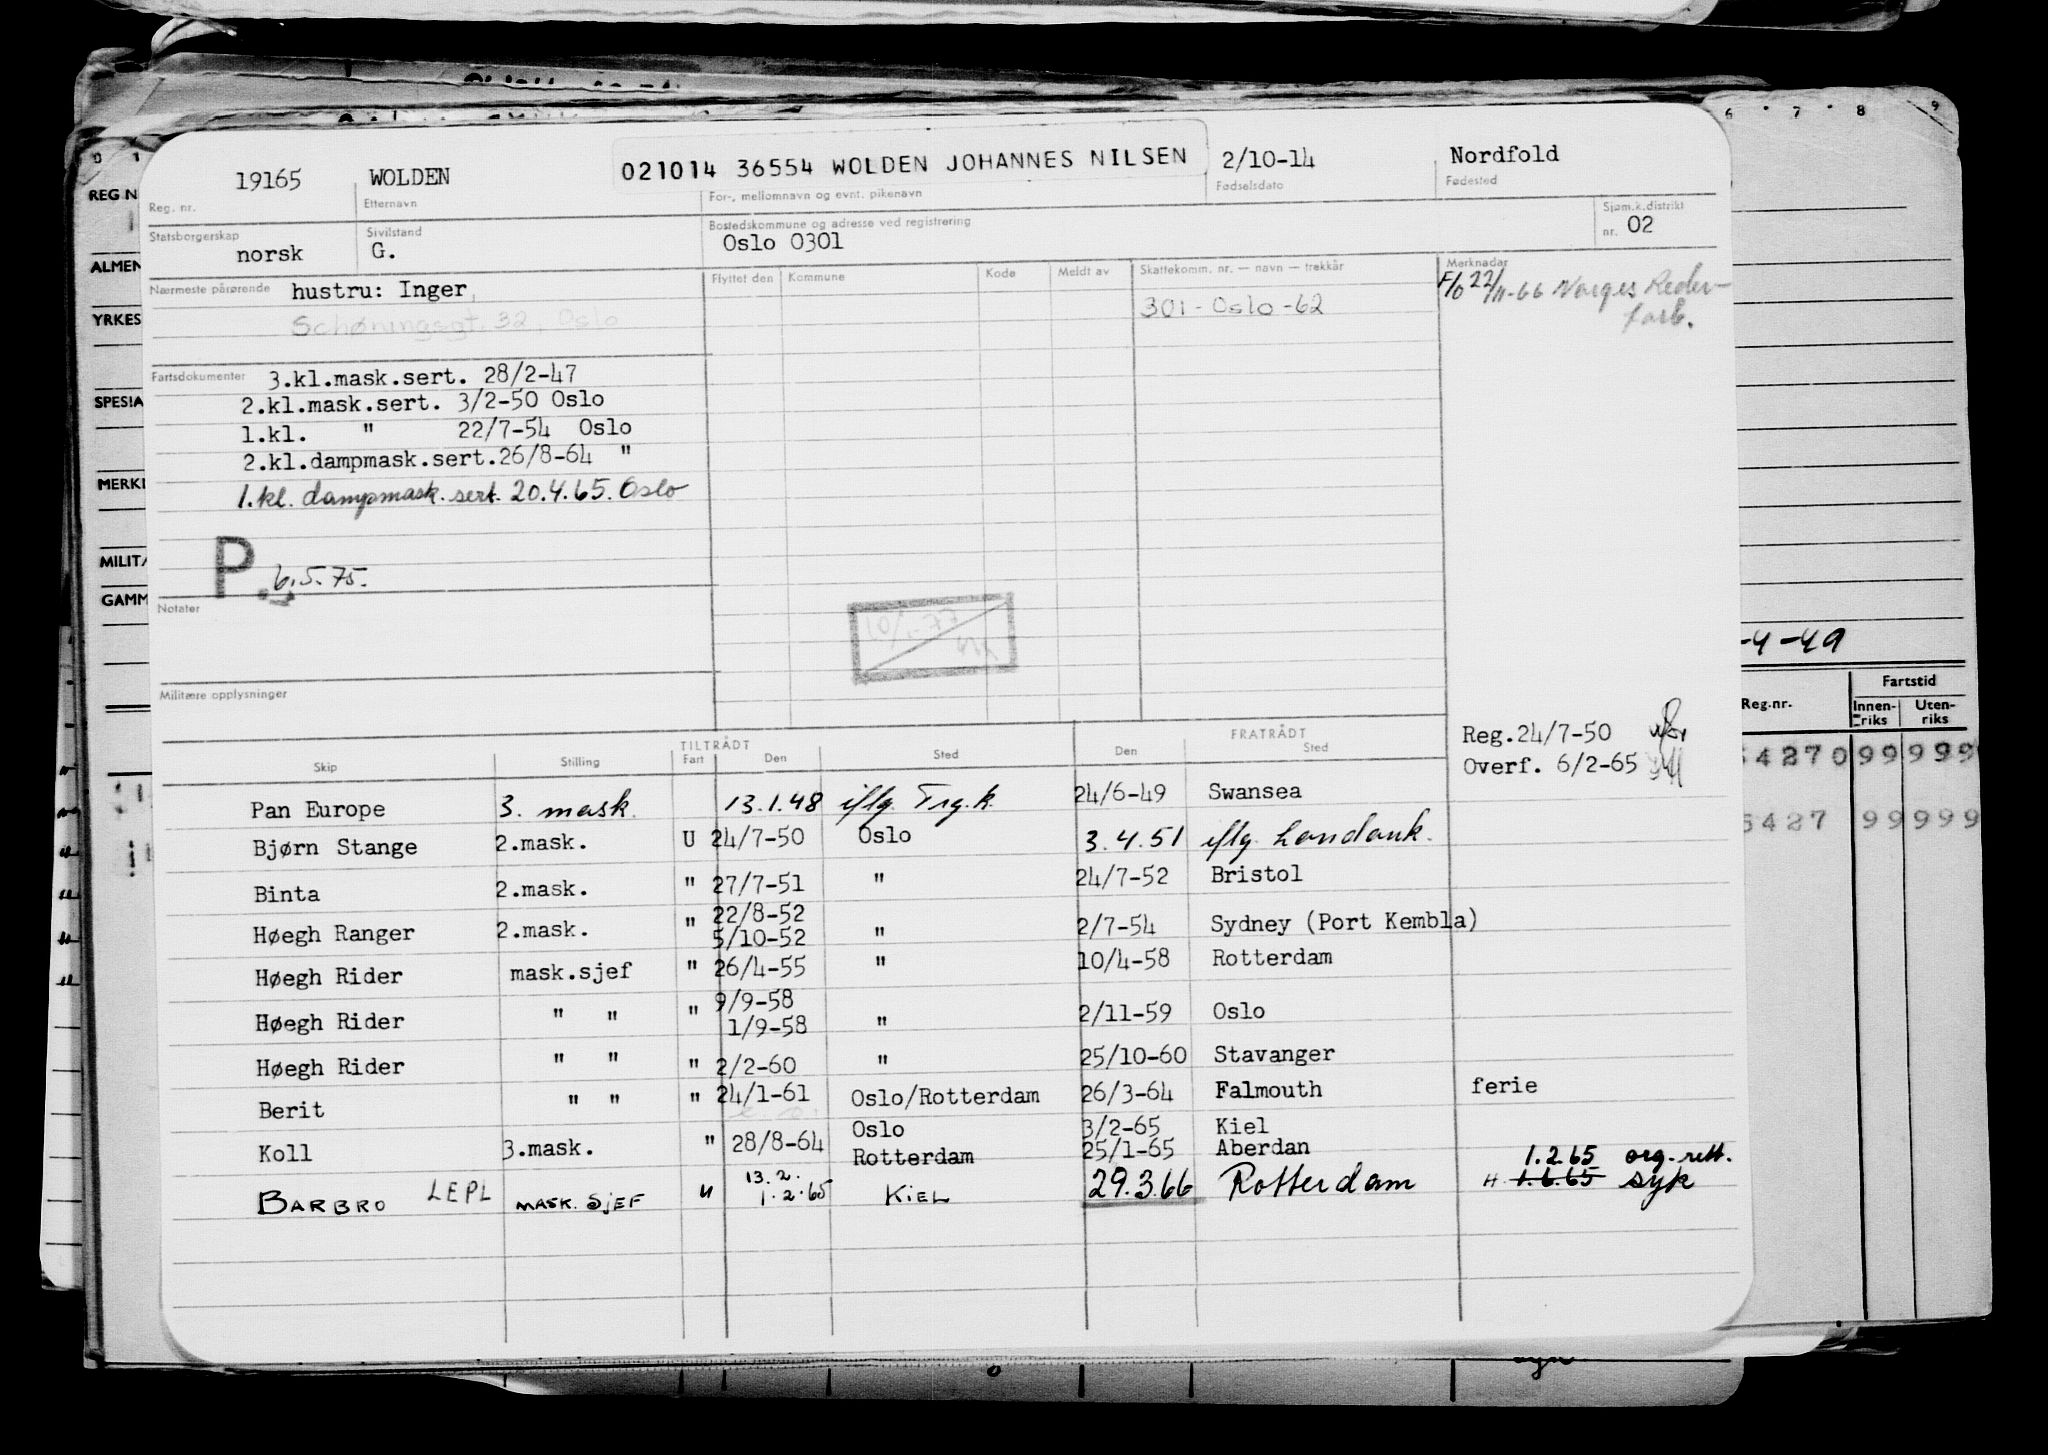 021014 36554 WOLDEN JOHANNES NILSEN
19165 WOLDEN 2/10-14 Nordfold
Reg. nr. Etternavn For-, mellomnavn og evnt. pikenavn Fødselsdato Fødested
Statsborgerskap Sivilstand Bostedskommune og adresse ved registrering Sjøm.k.distrikt
norsk G. Oslo 0301 nr. 02
Nærmeste pårørende hustru: Inger,
Schøningsgt. 32, Oslo
Flyttet den Kommune Kode Meldt av Skattekomm. nr. — navn — trekkår Merknader
301 - Oslo - 62
F/O 22/11-66 Norges Reder-
forb.
Fartsdokumenter 3.kl.mask.sert. 28/2-47
2.kl.mask.sert. 3/2-50 Oslo
1.kl. " 22/7-54 Oslo
2.kl.dampmask.sert.26/8-64 "
1.kl. dampmask. sert. 20.4.65. Oslo
P. 6.5.75.
Notater
Militære opplysninger
Reg.24/7-50
Overf. 6/2-65
TILTRÅDT FRATRÅDT
Skip Stilling Fart Den Sted Den Sted
Pan Europe 3. mask. 13.1.48 iflg. Trg.k. 24/6-49 Swansea
Bjørn Stange 2.mask. U 24/7-50 Oslo 3.4.51 iflg. Landauk.
Binta 2.mask. " 27/7-51 " 24/7-52 Bristol
22/8-52
Høegh Ranger 2.mask. " 5/10-52 " 2/7-54 Sydney (Port Kembla)
Høegh Rider mask.sjef " 26/4-55 " 10/4-58 Rotterdam
9/9-58
Høegh Rider " " " 1/9-58 " 2/11-59 Oslo
Høegh Rider " " " 2/2-60 " 25/10-60 Stavanger
Berit " " " 24/1-61 Oslo/Rotterdam 26/3-64 Falmouth ferie
Oslo 3/2-65 Kiel
Koll 3.mask. " 28/8-64 Rotterdam 25/1-65 Aberdan
13.2. 1.2.65 org.rett.
BARBRO LEPL MASK. SJEF " 1.2.65 KIEL 29.3.66 Rotterdam H 1.6.65 syk
REG.N
ALMEN
YRKES
SPESIA
MERKN
MILITÆ
GAMM
6 7 8 9
-4-49
Fartstid
Reg.nr. Innen-riks Uten-riks
54270 99 999
5427 99 999